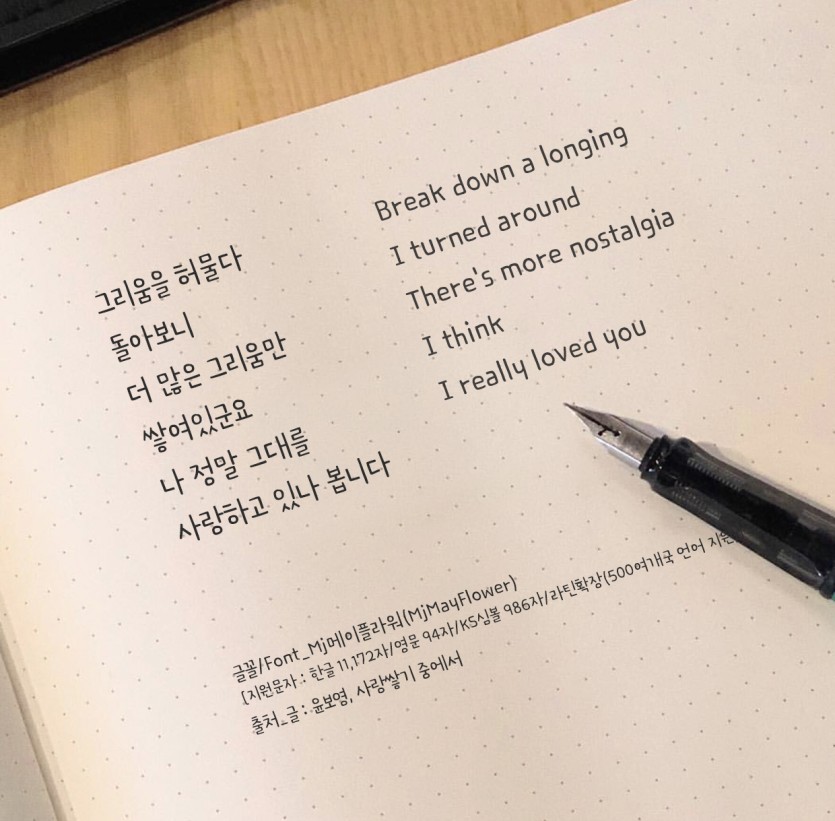 그리움을 허물다
돌아보니
더 많은 그리움만
쌓여있군요
나 정말 그대를
사랑하고 있나 봅니다
Break down a longing
I turned around
There's more nostalgia
I think
I really loved you
글꼴/Font_Mj메이플라워(MjMayFlower)
[지원문자 : 한글 11,172자/영문 94자/KS심볼 986자/라틴확장(500여개국 언어 지원
출처_글 : 윤보영, 사랑쌓기 중에서